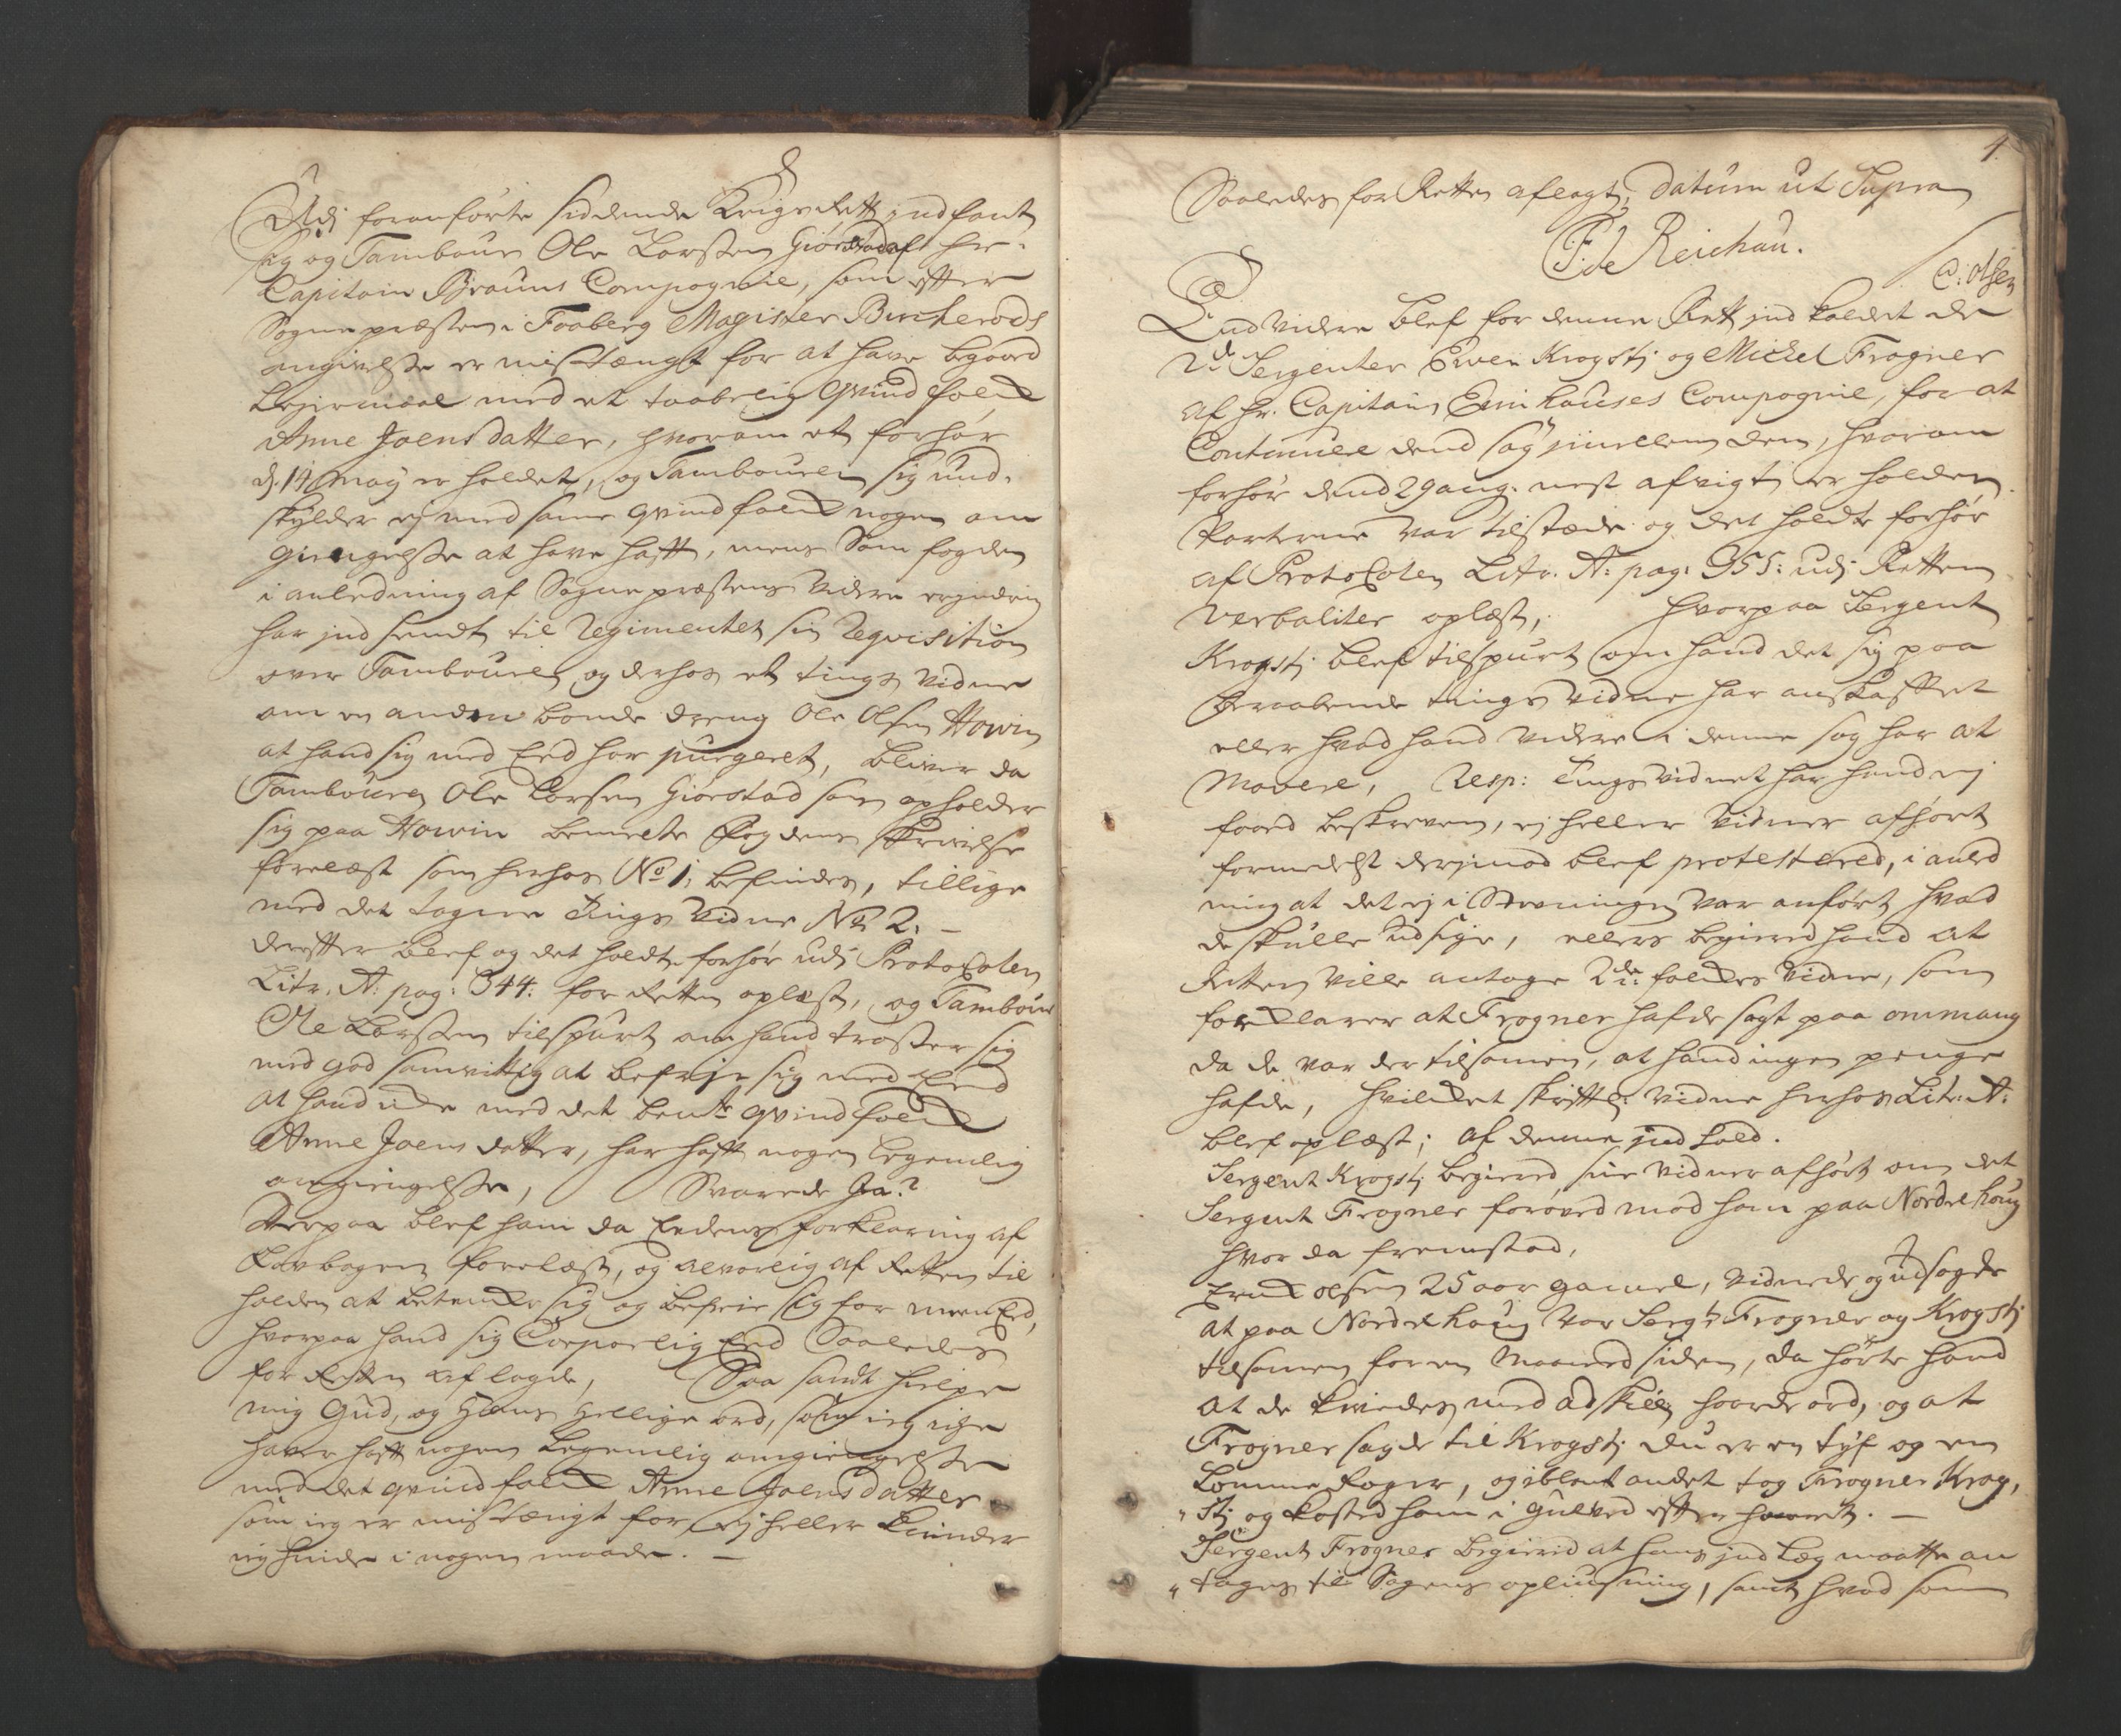 Udj foranførte siddende Krigs Rett indfant
sig og Tambour Ole Larssen Giørstad af hr.
Capitain Brauns Compagnie, som efter
Sognepræsten i Faaberg Magister Bircherods
angivelse er mistængt for at have begaaed
Lejermaal med et taabelig qvindfolck
Anne Joensdatter, hvorom et forhør
d. 14 May er holdet, og Tambouren sig und-
skylder ej med samme qvindfolck nogen om
giengelse at have hafft, mens Som fogden
i anledning af Sognepræstens videre erindring
har indsendt til Regimentet sin Reqvisition
over Tambouren, og derhos et tings vidne
om en anden bonde dreng Ole Olsen Howin
at hand sig med Eed har purgeret, bliver da
Tambouren Ole Larsen Giørstad som opholder
sig paa Howin bemelte Fogdens skrivelse
forelæst som herhos No 1, befindes, tillige
med det tagne Tings Vidne No 2. -
derefter blef og det holdte forhør udj Protocolen
Litr. A: pag: 344: for Retten oplæst, og Tambour
Ole Larssen tilspurt om hand trøster sig
med god samvittig at befrie sig med Eed
at hand icke med det bemte qvindfolck
Anne Joensdatter, har hafft nogen legemlig
omgiengelse, Svarede Ja?
Derpaa blef ham da Eedens forklaring af
Lovbogen forelæst, og alvorlig af Retten til
holden at betencke sig og befrie sig for meen Eed,
hvorpaa hand sig Corporlig Eed Saaledes
for Retten aflagde, Saa sandt hielpe
mig Gud, og Hans Hellige ord, som ieg icke
haver hafft nogen legemlig omgiengelse
med det qvindfolck Anne Joensdatter
som ieg er mistængt for, ej heller kiender
ieg hinde i nogen maade. -
1.
Saaledes for Retten aflagt, datum ut Supra
F: de Reichau.
C: Olsen
End videre blef for denne Rett ind kaldet de
2de Sergenter Even Krogstj og Michel Frogner
af hr. Capitain Emhauses Compagnie, for at
Continuere dend sag imellem dem, hvorom
forhør dend 29 aug. nest afvigt er holden
Parterne var tilstæde og det holdte forhør
af Protocolen Litr. A: pag: 355: udj Retten
verbaliter oplæst, hvorpaa Sergent
Krogstj blef tilspurt om hand det sig paa
beraabende tings vidne har anskaffet
eller hvad hand videre i denne sag har at
Movere, Resp: Tings vidnet har hand ej
faaed beskreven, ej heller vidner afhørt
formedelst derjmod blef protestered, i anled
ning at det ej i Stevningen var anført hvad
de skulle udsige, ellers begiered hand at
Retten ville antage 2de folckes vidne, som
forklarer at Frogner hafde sagt paa ommang
da de var der tilsamen, at hand ingen penge
hafde, hvilcket skrifftl: vidne herhos Litr. A:
blef oplæst; af denne jndhold.
Sergent Krogstj begiered sine vidner afhørt om det
Sergent Frogner forøved mod ham paa Nordrehoug
hvor da fremstod,
Erick olsen 25 aar gamel, vidnede og udsagde
at paa Nordrehoug var Sergt: Frogner og Krogstj
tilsamen for en Maaned siden, da hørte hand
at de kivedes med adskill: haarde ord, og at
Frogner sagde til Krogstj du er en tyf og en
Lomme Røver, og iblant andet tog Frogner Krog,
" stj og kasted ham i gulved efter haaret. -
Sergent Frogner begiered at hans indlæg maatte an
" tages til Sagens opliusning, samt hvad som